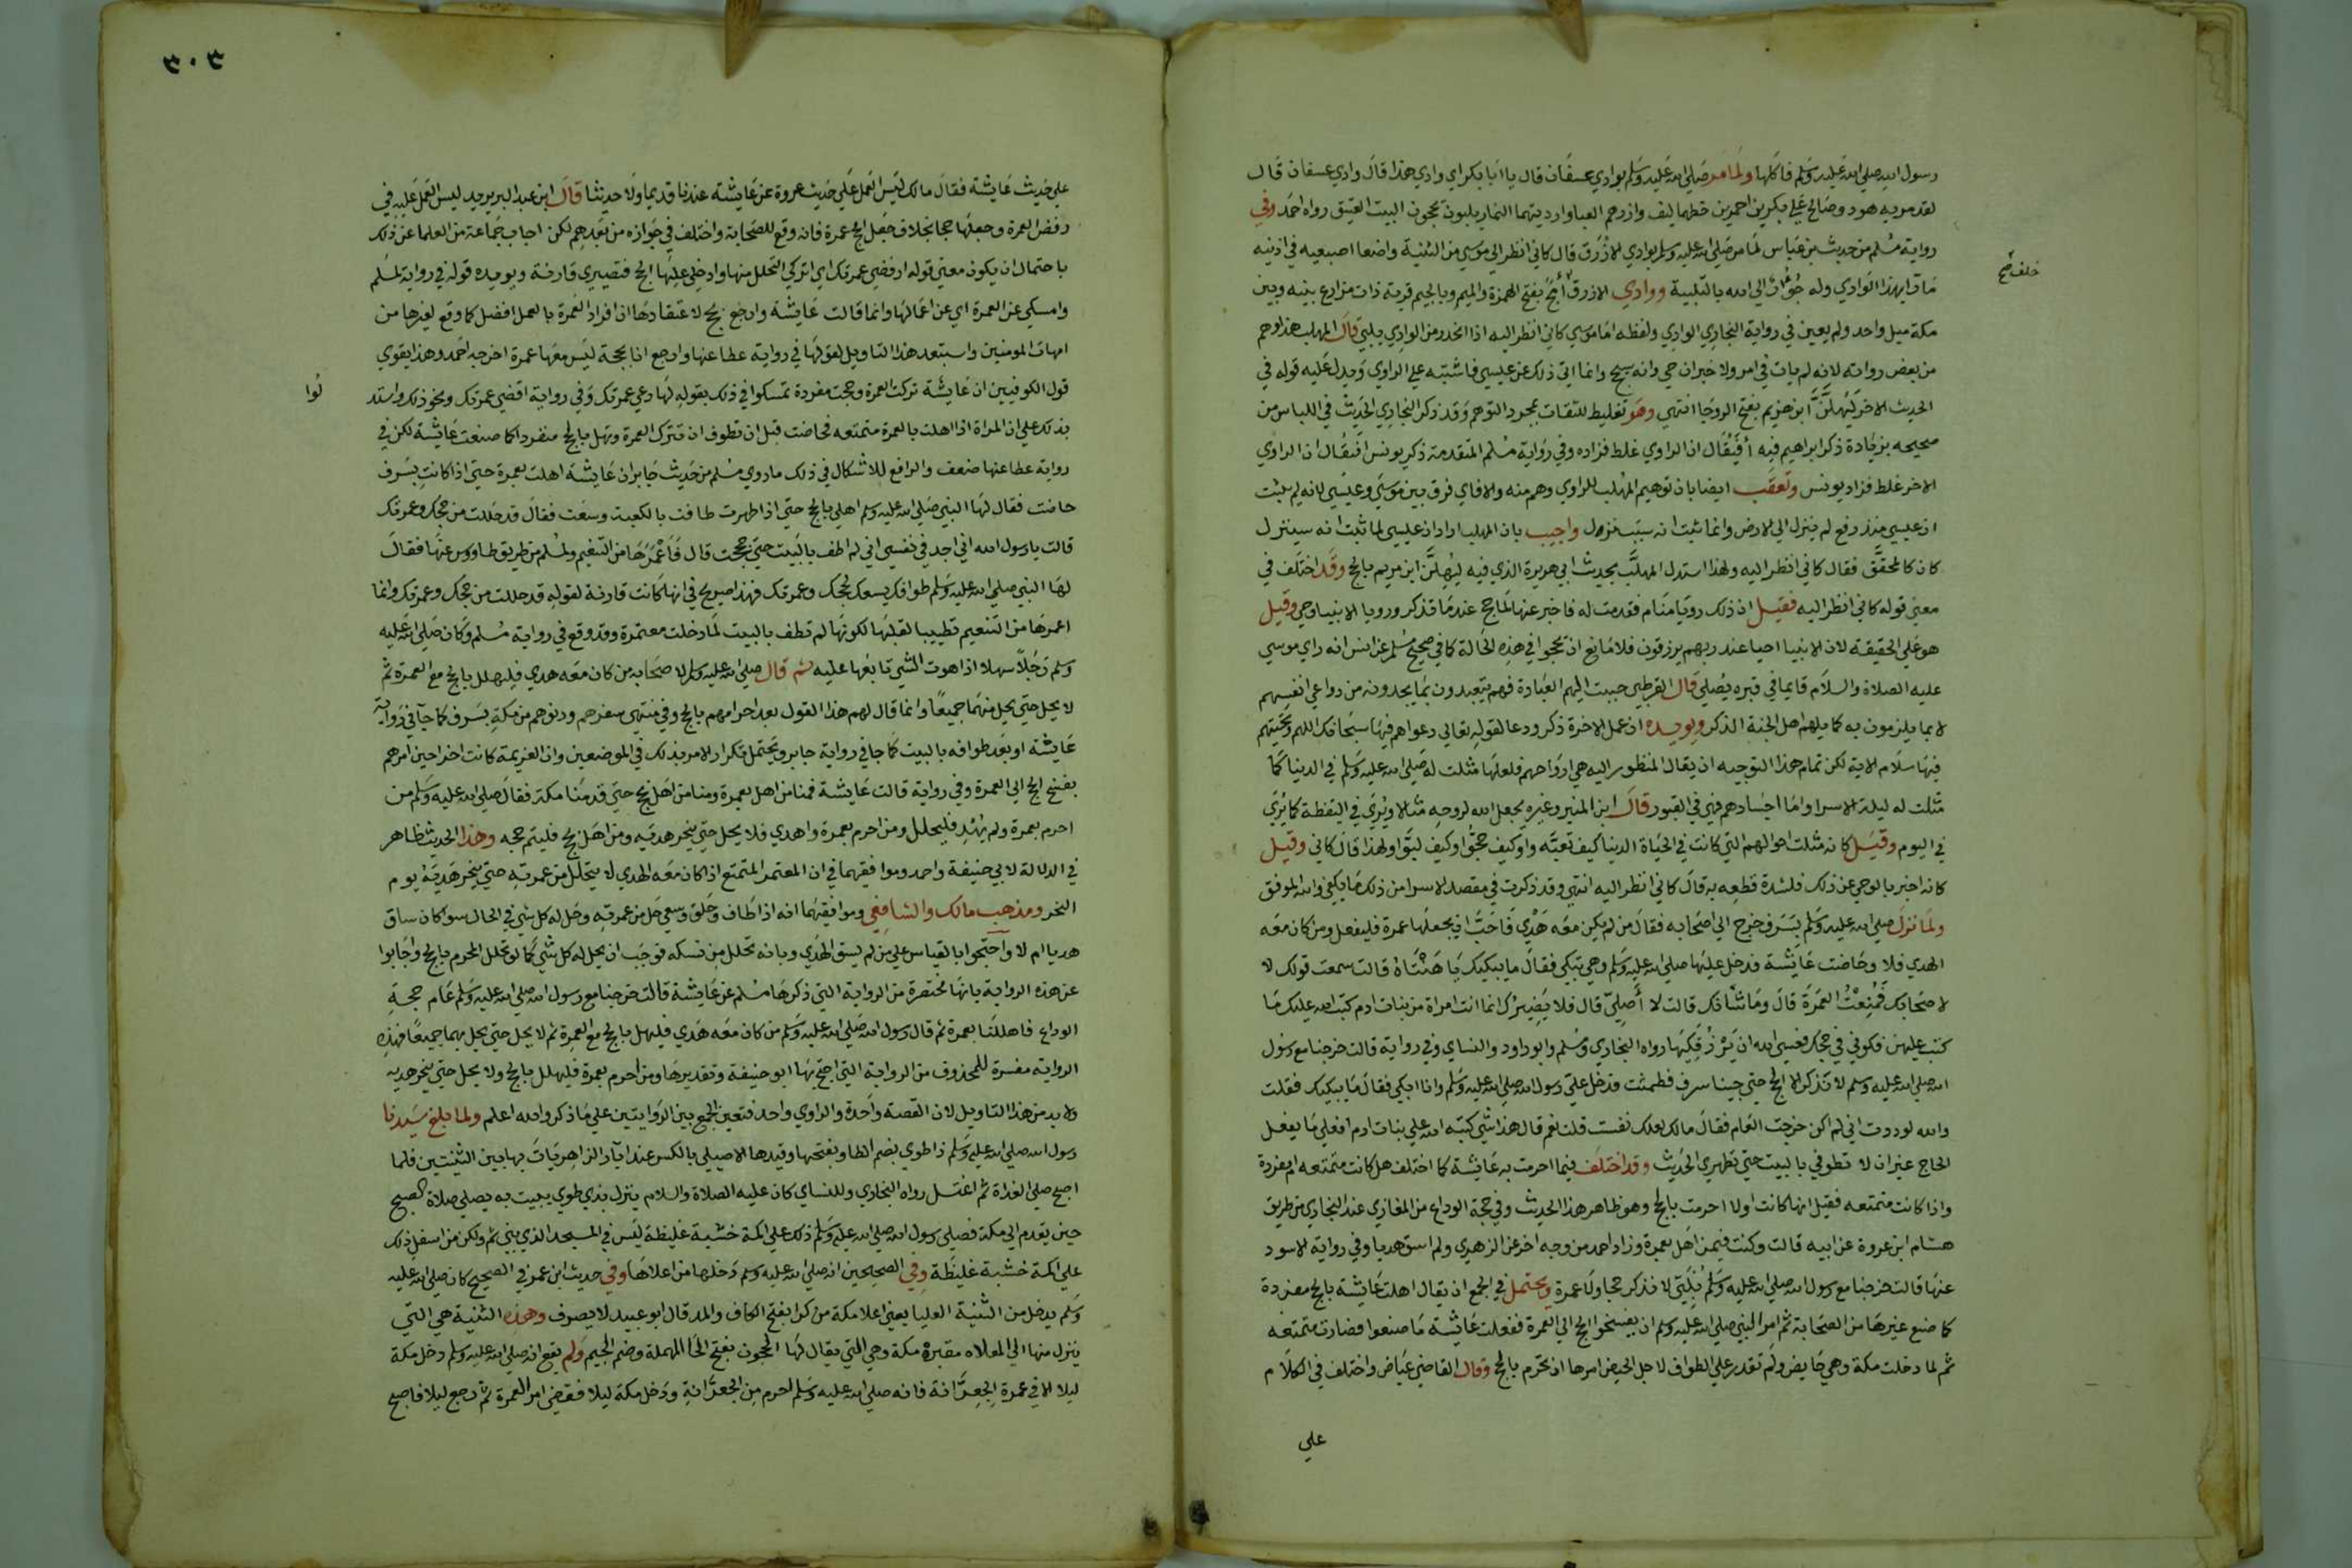 رسول الله صلى الله عليه وسلم فاكلها ولما مر صلى الله عليه وسلم بوادي عسفان قال يا ابا بكر اي وادي هذا قال وادي عسفان قال
لقد مر به هود وصالح علي بكرين احمرين خطمهما ليف وازرهم العبا وارديتهما النمار يلبون يحجون البيت العتيق رواه احمد وفي
رواية مسلم من حديث بن عباس لما مر صلى الله عليه وسلم بوادي الازرق قال كاني انظر الي موسي من الثنية واضعا اصبعيه في اذنيه
مارا بهذا الوادي وله جؤار الي الله بالتلبية ووادي الازرق أمج بفتح الهمزة والميم وبالجيم قرية ذات مزارع بينه وبين
خلف صح
مكة ميل واحد ولم يعين في رواية البخاري الوادي ولفظه اما موسي كاني انظر اليه اذا انحدر من الوادي يلبي قال المهلب هذا وهم
من بعض رواته لانه لم يات في امر ولا خبر ان حي وانه سيحج وانما اتي ذلك عن عيسي فاشتبه علي الراوي ويدل عليه قوله في
الحديث الاخر ليهلن ابن مريم بفتح الروحا انتهي وهو تغليط للثقات بمجرد التوهم وقد ذكر البخاري الحديث في اللباس من
صحيحه بزيادة ذكر ابراهيم فيه أفيقال ان الراوي غلط فزاده وفي رواية مسلم المتقدمة ذكر يونس افيقال ان الراوي
الاخر غلط فزاد يونس وتعقب ايضا بان توهيم المهلب للراوي وهم منه والا فاي فرق بين موسي وعيسي لانه لم يثبت
ان عيسي منذ رفع لم ينزل الي الارض وانما ثبت انه سينزل واجيب بان المهلب اراد ان عيسي لما ثبت انه سينزل
كان كالمحقق فقال كاني انظر اليه ولهذا استدل المهلب بحديث ابي هريرة الذي فيه ليهلن ابن مريم بالحج وقد اختلف في
معني قوله كاني انظر اليه فقيل ان ذلك رويا منام فقدمت له فاخبر عنها لما حج عندما تذكر ورويا الانبيا وحي وقيل
هو علي الحقيقة لان الانبيا احيا عند ربهم يرزقون فلا مانع ان يحجوا في هذه الحالة كما في صحيح مسلم عن انس انه راي موسي
عليه الصلاة والسلام قايما في قبره يصلي قال القرطبي حببت اليهم العبادة فهم يتعبدون بما يجدونه من دواعي انفسهم
لا بما يلزمون به كما يلهم اهل الجنة الذكر ويويده ان عمل الاخرة ذكر ودعا لقوله تعالي دعواهم فيها سبحانك اللهم وتحيتهم
فيها سلام الاية لكن تمام هذا التوجيه ان يقال المنظور اليه هي ارواحهم فلعلها مثلت له صلى الله عليه وسلم في الدنيا كما
مثلت له ليلة الاسرا واما اجسادهم فهي في القبور قال ابن المنير وغيره يجعل الله لروحه مثالا ويري في اليقظة كما يري
في اليوم وقيل كانه مثلت احوالهم التي كانت في الحياة الدنيا كيف تعبدوا وكيف حجوا وكيف لبوا ولهذا قال كاني وقيل
كانه اخبر بالوحي عن ذلك فلشدة قطعه به قال كاني انظر اليه انتهي وقد ذكرت في مقصد الاسرا من ذلك ما يكفي والله الموفق
ولما نزل صلى الله عليه وسلم بسرف خرج الي اصحابه فقال من لم يكن معه هدي فاحب ان يجعلها عمرة فليفعل ومن كان معه
الهدي فلا وحاضت عايشة فدخل عليها صلى الله عليه وسلم وهي تبكي فقال ما يبكيك يا هنتاه قالت سمعت قولك لا
لاصحابك فمنعت العمرة قال وما شانك قالت لا أصلي قال فلا يضيرك انما انت امراة من بنات ادم كتب الله عليك ما
كتب عليهن فكوني في حجك فعسي الله ان يرزقكيها رواه البخاري ومسلم وابو داود والنساي وفي رواية قالت خرجنا مع رسول
الله صلى الله عليه وسلم لا نذكر الا الحج حتي جينا سرف فطمثت فدخل علي رسول الله صلى الله عليه وسلم وانا ابكي فقال ما يبكيك فقلت
والله لوددت اني لم اكن خرجت العام فقال مالك لعلك نفست قلت نعم قال هذا شي كتبه الله علي بنات ادم افعلي ما يفعل
الحاج غير ان لا تطوفي بالبيت حتي تطهري الحديث وقد اختلف فيما احرمت به عايشة كما اختلف هل كانت متمتعه ام مفردة
واذا كانت متمتعه فقيل انها كانت اولا احرمت بالحج وهو ظاهر هذا الحديث وفي حجة الوداع من المغازي عند البخاري من طريق
هشام ابن عروة عن ابيه قالت وكنت فيمن اهل بعمرة وزاد احمد من وجه اخر عن الزهري ولم اسق هديا وفي رواية الاسود
عنها قالت خرجنا مع رسول الله صلى الله عليه وسلم نلبي لا نذكر حجا ولا عمرة ويحتمل في الجمع ان يقال اهلت عايشة بالحج مفردة
كما صنع غيرها من الصحابة ثم امر النبي صلى الله عليه وسلم ان يفسخوا الحج الي العمرة ففعلت عايشة ما صنعوا فصارت متمتعه
ثم لما دخلت مكة وهي حايض ولم تقدر علي الطواف لاجل الحيض امرها ان تحرم بالحج وقال القاضي عياض واختلف في الكلام
علي
٣٠٣
علي حديث عايشة فقال مالك ليس العمل علي حديث عروة عن عايشة عندنا قديما ولا حديثا قال ابن عبد البر يريد ليس العمل عليه في
رفض العمرة وجعلها حجا بخلاف جعل الحج عمرة فانه وقع للصحابة واختلف في جوازه من بعدهم لكن اجاب جماعة من العلما عن ذلك
باحتمال ان يكون معني قوله ارفضي عمرتك اي اتركي التحلل منها وادخلي عليها الحج فتصيري قارنة ويويده قوله في رواية لمسلم
وامسكي عن العمرة اي عن اعمالها وانما قالت عايشة وارجع بحج لاعتقادها ان افراد العمرة بالعمل افضل كما وقع لغيرها من
امهات المومنين واستبعد هذا التاويل لقولها في رواية عطا عنها وارجع انا بحجة ليس معها عمرة اخرجه احمد وهذا يقوي
قول الكوفيين ان عايشة تركت العمرة وحجت مفردة تمسكوا في ذلك بقوله لها دعي عمرتك وفي رواية اقضي عمرتك ونحو ذلك واستد
لوا
بذلك علي ان المراة اذا اهلت بالعمرة متمتعه فحاضت قبل ان تطوف ان تترك العمرة وتهل بالحج منفردا كما صنعت عايشة لكن في
رواية عطا عنها ضعف والرافع للاشكال في ذلك ما روي مسلم من حديث جابر ان عايشة اهلت بعمرة حتي اذا كانت بسرف
حاضت فقال لها النبي صلى الله عليه وسلم اهلي بالحج حتي اذا طهرت طافت بالكعبة وسعت فقال قد حللت من حجك وعمرتك
قالت يا رسول الله اني اجد في نفسي اني لم اطف بالبيت حتي حججت قال فاعمرها من التنعيم ولمسلم من طريق طاووس عنها فقال
لها النبي صلى الله عليه وسلم طوافك يسعك لحجك وعمرتك فهذا صريح في انها كانت قارنة لقوله قد حللت من حجك وعمرتك وانما
اعمرها من التنعيم تطييبا لقلبها لكونها لم تطف بالبيت لما دخلت معتمرة وقد وقع في رواية مسلم وكان صلى الله عليه
وسلم رجلا سهلا اذا هوت الشي تابعها عليه ثم قال صلى الله عليه وسلم لاصحابه من كان معه هدي فليهلل بالحج مع العمرة ثم
لا يحل حتي يحل منهما جميعا وانما قال لهم هذا القول بعد احرامهم بالحج وفي منتهي سفرهم ودنوهم من مكة بسرف كما جا في رواية
عايشة او بعد طوافه بالبيت كما جا في رواية جابر ويحتمل تكرار الامر بذلك في الموضعين وان العزيمة كانت اخرا حين امرهم
بفسخ الحج الي العمرة وفي رواية قالت عايشة فمنا من اهل بعمرة ومنا من اهل بحج حتي قدمنا مكة فقال صلى الله عليه وسلم من
احرم بعمرة ولم يهد فليحلل ومن احرم بعمرة واهدي فلا يحل حتي ينحر هديه ومن اهل بحج فليتم حجه وهذا الحديث ظاهر
في الدلالة لابي حنيفة واحمد وموافقيهما في ان المعتمر المتمتع اذا كان معه الهدي لا يتحلل من عمرته حتي ينحر هديه يوم
النحر ومذهب مالك والشافعي وموافقيهما انه اذا طاف وحلق وسعي حل من عمرته وحل له كل شي في الحال سوا كان ساق
هديا ام لا واحتجوا بالقياس علي من لم يسق الهدي وبانه تحلل من نسكه فوجب ان يحل له كل شي كما لو تحلل المحرم بالحج واجابوا
عن هذه الرواية بانها مختصرة من الرواية التي ذكرها مسلم عن عايشة قالت خرجنا مع رسول الله صلى الله عليه وسلم عام حجة
الوداع فاهللنا بعمرة ثم قال رسول الله صلى الله عليه وسلم من كان معه هدي فليهل بالحج مع العمرة ثم لا يحل حتي يحل بهما جميعا فهذه
الرواية مفسرة للمحذوف من الرواية التي احتج بها ابو حنيفة وتقديرها ومن احرم بعمرة فليهلل بالحج ولا يحل حتي ينحر هديه
ولا بد من هذا التاويل لان القصة واحدة والراوي واحد فتعين الجمع بين الروايتين علي ما ذكر والله اعلم ولما بلغ سيدنا
رسول الله صلى الله عليه وسلم ذا طوي بضم الطا وبفتحها وقيدها الاصيلي بالكسر عند ابار الزاهر بات بها بين الثنيتين فلما
اصبح صلي الغداة ثم اغتسل رواه البخاري وللنساي كان عليه الصلاة والسلام ينزل بذي طوي يبيت به يصلي صلاة الصبح
حين يقدم الي مكة فصلي رسول الله صلى الله عليه وسلم ذلك علي اكمة خشبة غليظة ليس في المسجد الذي بني ثم ولكن من اسفل ذلك
علي اكمة خشبة غليظة وفي الصحيحين انه صلى الله عليه وسلم دخلها من اعلاها وفي حديث ابن عمر في الصحيح كان صلى الله عليه
وسلم يدخل من الثنية العليا يعني اعلا مكة من كدا بفتح الكاف والمد قال ابو عبيد لا يصرف وهذه الثنية هي التي
ينزل منها الي المعلاه مقبرة مكة وهي التي يقال لها الحجون بفتح الحا المهملة وضم الجيم ولم يقع انه صلى الله عليه وسلم دخل مكة
ليلا الا في عمرة الجعرانة فانه صلى الله عليه وسلم احرم من الجعرانة ودخل مكة ليلا فقضي امر العمرة ثم رجع ليلا فاصبح